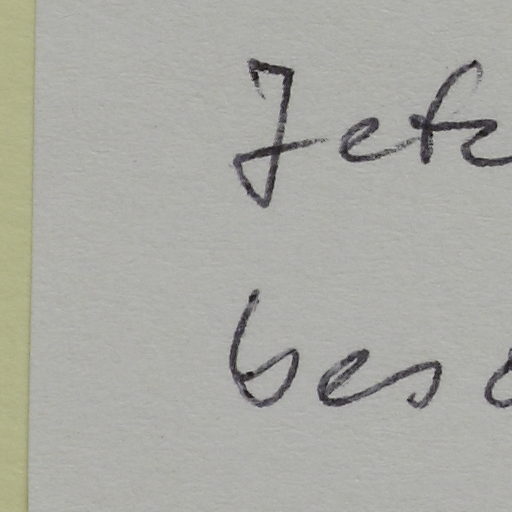 Jetz
besc